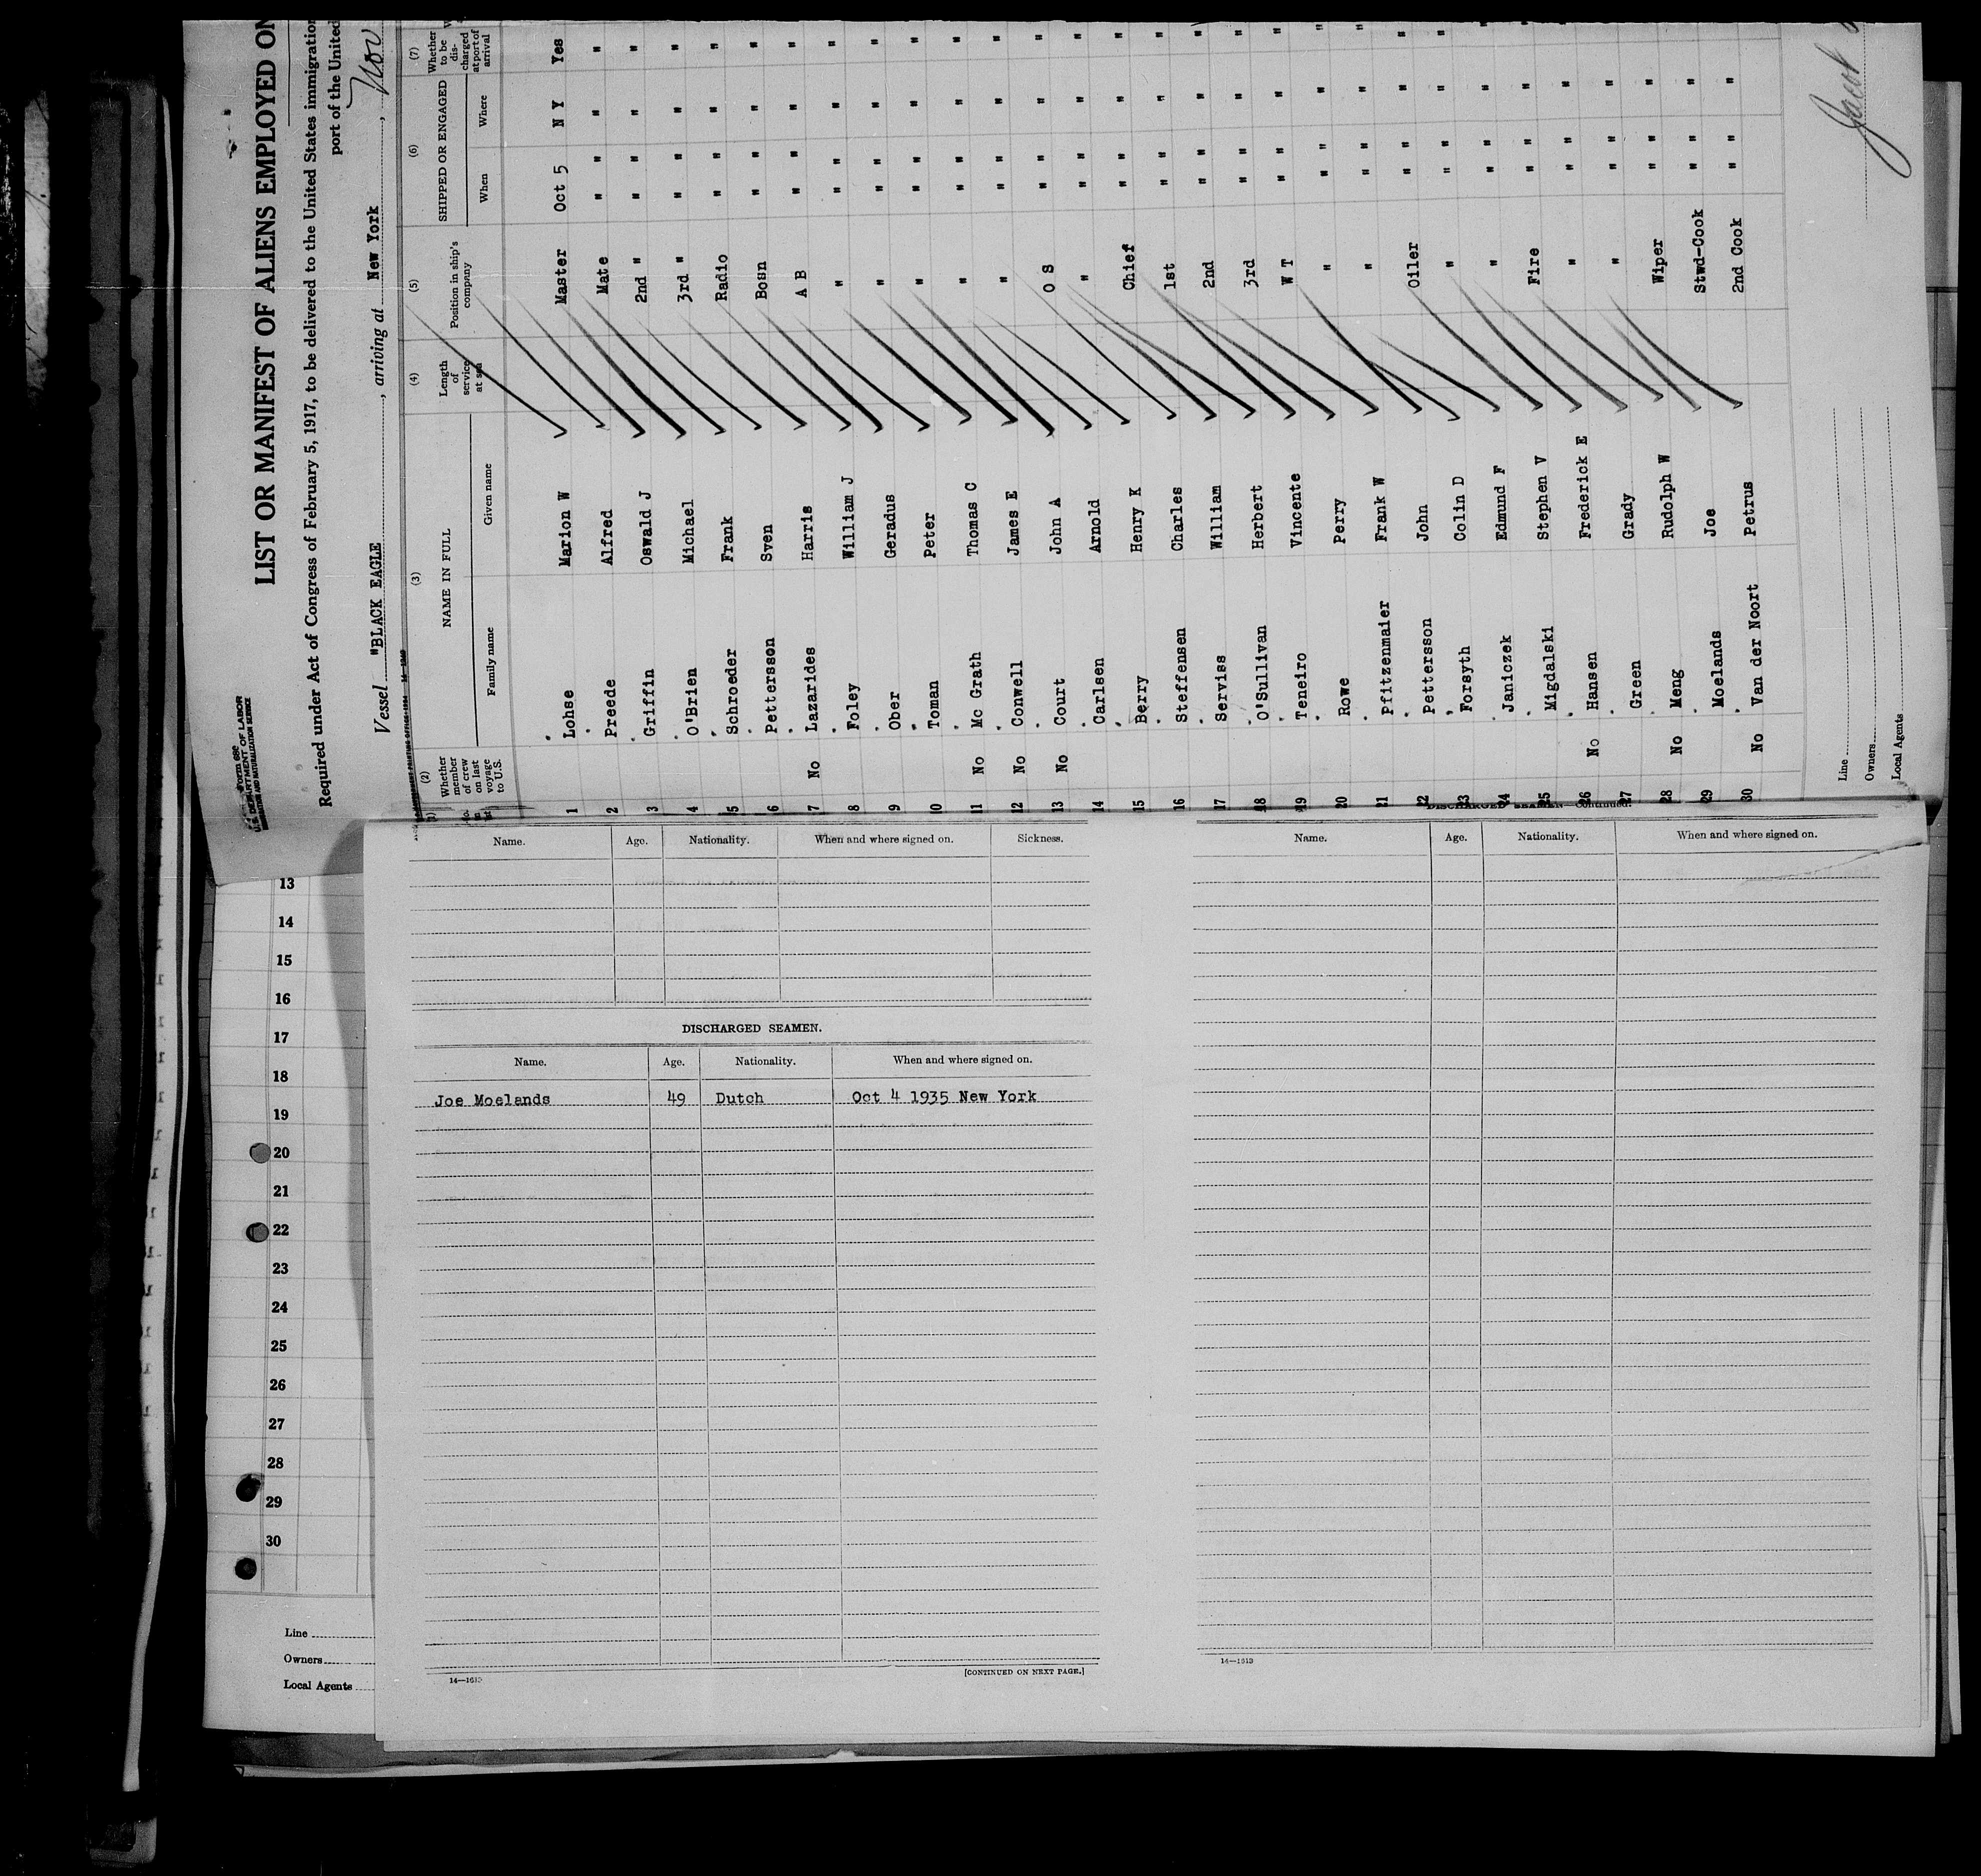 Form 680
U.S. DEPARTMENT OF LABOR
IMMIGRATION AND NATURALIZATION SERVICE
LIST OR MANIFEST OF ALIENS EMPLOYED ON
Required under Act of Congress of February 5, 1917, to be delivered to the United States immigration
port of the United
Vessel "BLACK EAGLE , arriving at New York , Nov
(2) (3) (4) (5) (6) (7)
Whether member of crew on last voyage to U.S. NAME IN FULL Length of service at sea Position in ship's company SHIPPED OR ENGAGED Whether to be discharged at port of arrival
Family name Given name When Where
1 Lohse Marion W Master Oct 5 N Y Yes
2 Preede Alfred Mate " " " "
3 Griffin Oswald J 2nd " " " " "
4 O'Brien Michael 3rd " " " " "
5 Schroeder Frank Radio " " " "
6 Pettersson Sven Bosn " " " "
7 No Lazarides Harris A B " " " "
8 Foley William J " " " " "
9 Ober Geradus " " " " "
10 Toman Peter " " " " "
11 No Mc Grath Thomas C " " " " "
12 No Conwell James E " " " " "
13 No Court John A O S " " " "
14 Carlsen Arnold " " " " "
15 Berry Henry K Chief " " " "
16 Steffensen Charles 1st " " " "
17 Serviss William 2nd " " " "
18 O'Sullivan Herbert 3rd " " " "
19 Teneiro Vincente W T " " " "
20 Rowe Perry " " " " "
21 Pfitzenmaier Frank W " " " " "
22 Pettersson John Oiler " " " "
23 Forsyth Colin D " " " " "
24 Janiczek Edmund F " " " " "
25 Migdalski Stephen V Fire " " " "
26 No Hansen Frederick E " " " "
27 Green Grady " " " "
28 No Meng Rudolph W Wiper " " "
29 Moelands Joe Stwd-Cook " " "
30 No Van der Noort Petrus 2nd Cook " " "
Line
Owners
Local Agents
Jacob
Name. Age. Nationality. When and where signed on. Sickness.
DISCHARGED SEAMEN.
Name. Age. Nationality. When and where signed on.
Joe Moelands 49 Dutch Oct 4 1935 New York
[CONTINUED ON NEXT PAGE.]
DISCHARGED SEAMEN—Continued.
Name. Age. Nationality. When and where signed on.
14—1613
13
14
15
16
17
18
19
20
21
22
23
24
25
26
27
28
29
30
Line
Owners
Local Agents